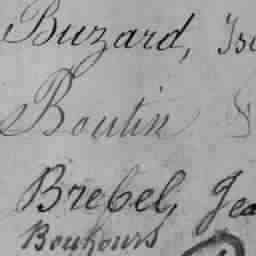 Buzard,
Boutin
Brebel,
Bouhours